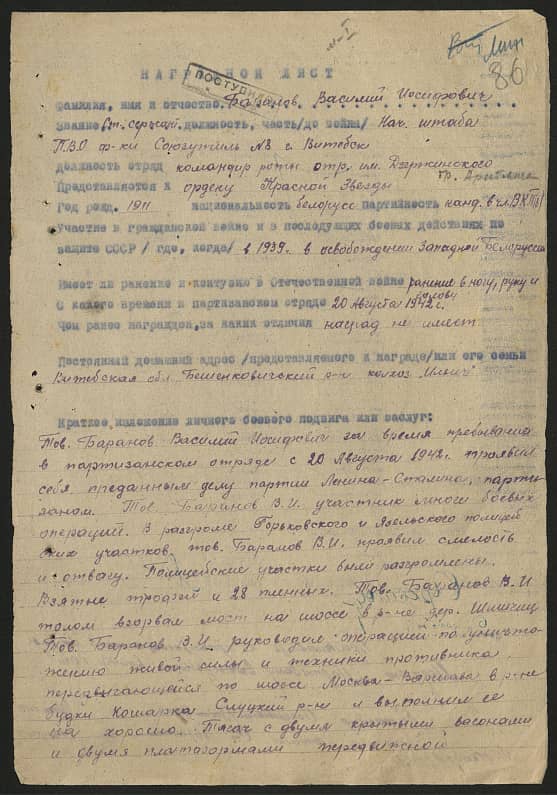 86
НАГРАДНОЙ ЛИСТ
ПОСТУПИЛО
Фамилия, имя и отчество. Баранов Василий Иосифович
Звание Ст. сержант. должность, часть/до войны/ Нач. штаба
П.В.О ф-ки Союзутиль №8 г. Витебск
должность отряд командир роты отр. им. Дзержинского
Представляется к ордену Красной Звезды
Год рожд. 1911 национальность белорус партийность канд. в чл. ВКП(б)
Участие в гражданской войне и в последующих боевых действиях по
защите СССР / где, когда/ в 1939 г. в освобождении Западной Белоруссии
Имеет ли ранение и контузию в Отечественной войне ранение в ногу, руку и
голову
С какого времени в партизанском отряде 20 Августа 1942 г.
Чем ранее награжден, за какие отличия наград не имеет
Постоянный домашний адрес /представляемого к награде/или его семьи
Витебская обл. Бешенковичский р-н колхоз "Ильич"
Краткое изложение личного боевого подвига или заслуг:
Тов. Баранов Василий Иосифович за время пребывания
в партизанском отряде с 20 Августа 1942 г. проявил
себя преданным делу партии Ленина-Сталина, парти-
заном. Тов. Баранов В.И. участник многих боевых
операций. В разгроме Горьковского и Язельского полицей
ских участков тов. Баранов В.И. проявил смелость
и отвагу. Полицейские участки были разгромлены.
Взятые трофеи и 28 пленных. Тов. Баранов В.И
толом взорвал мост на шоссе в р-не дер.
Тов. Баранов В.И руководил операцией по уничто-
жению живой силы и техники противника
передвигающейся по шоссе Москва-Варшава в р-не
будки Кошарка Слуцкий р-н и выполнил ее
на хорошо. Тягач с двумя крытыми вагонами
и двумя платформами передвижной